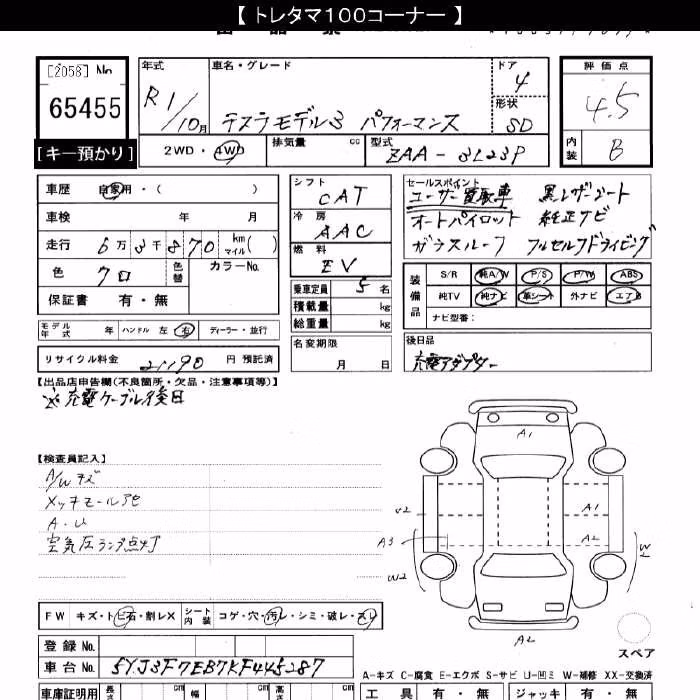 【 トレタマ100コーナー 】
[2058] No
65455
[キー預かり]
年式 R1/10月
車名・グレード
テスラモデル3 パフォーマンス
ドア 4
形状 SD
2WD・4WD
排気量 cc
型式 ZAA-3L23P
評価点 4.5
内装 B
車歴 自家用・( )
車検 年 月
走行 6万3千870 km マイル( )
色 クロ 色替 カラーNo.
保証書 有・無
モデル年式 年 ハンドル 左 右 ディーラー・並行
リサイクル料金 21,190 円 預託済
シフト CAT
冷房 AAC
燃料 EV
乗車定員 5 名
積載量 kg
総重量 kg
名変期限 月 日
セールスポイント
ユーザー買取車 黒レザーシート
オートパイロット 純正ナビ
ガラスルーフ フルセルフドライビング
装備品
S/R 純A/W P/S P/W ABS
純TV 純ナビ 革シート 外ナビ エアB
ナビ型番:
後日品
充電アダプター
【出品店申告欄(不良箇所・欠品・注意事項等)】
※充電ケーブル後日
【検査員記入】
A/Wキズ
メッキモールアセ
A・U
空気圧ランプ点灯
A1
V2
A1
A3
A2
W2
W2
A2
スペア
FW キズ・トビ石・割レX シート内装 コゲ・穴・汚レ・シミ・破レ・スレ
登録 No.
車台 No. 5YJ3F7EB7KF445287
A-キズ C-腐食 E-エクボ S-サビ U-凹ミ W-補修 XX-交換済
車庫証明用 長さ cm 幅 cm 高さ cm
工具 有・無 ジャッキ 有・無